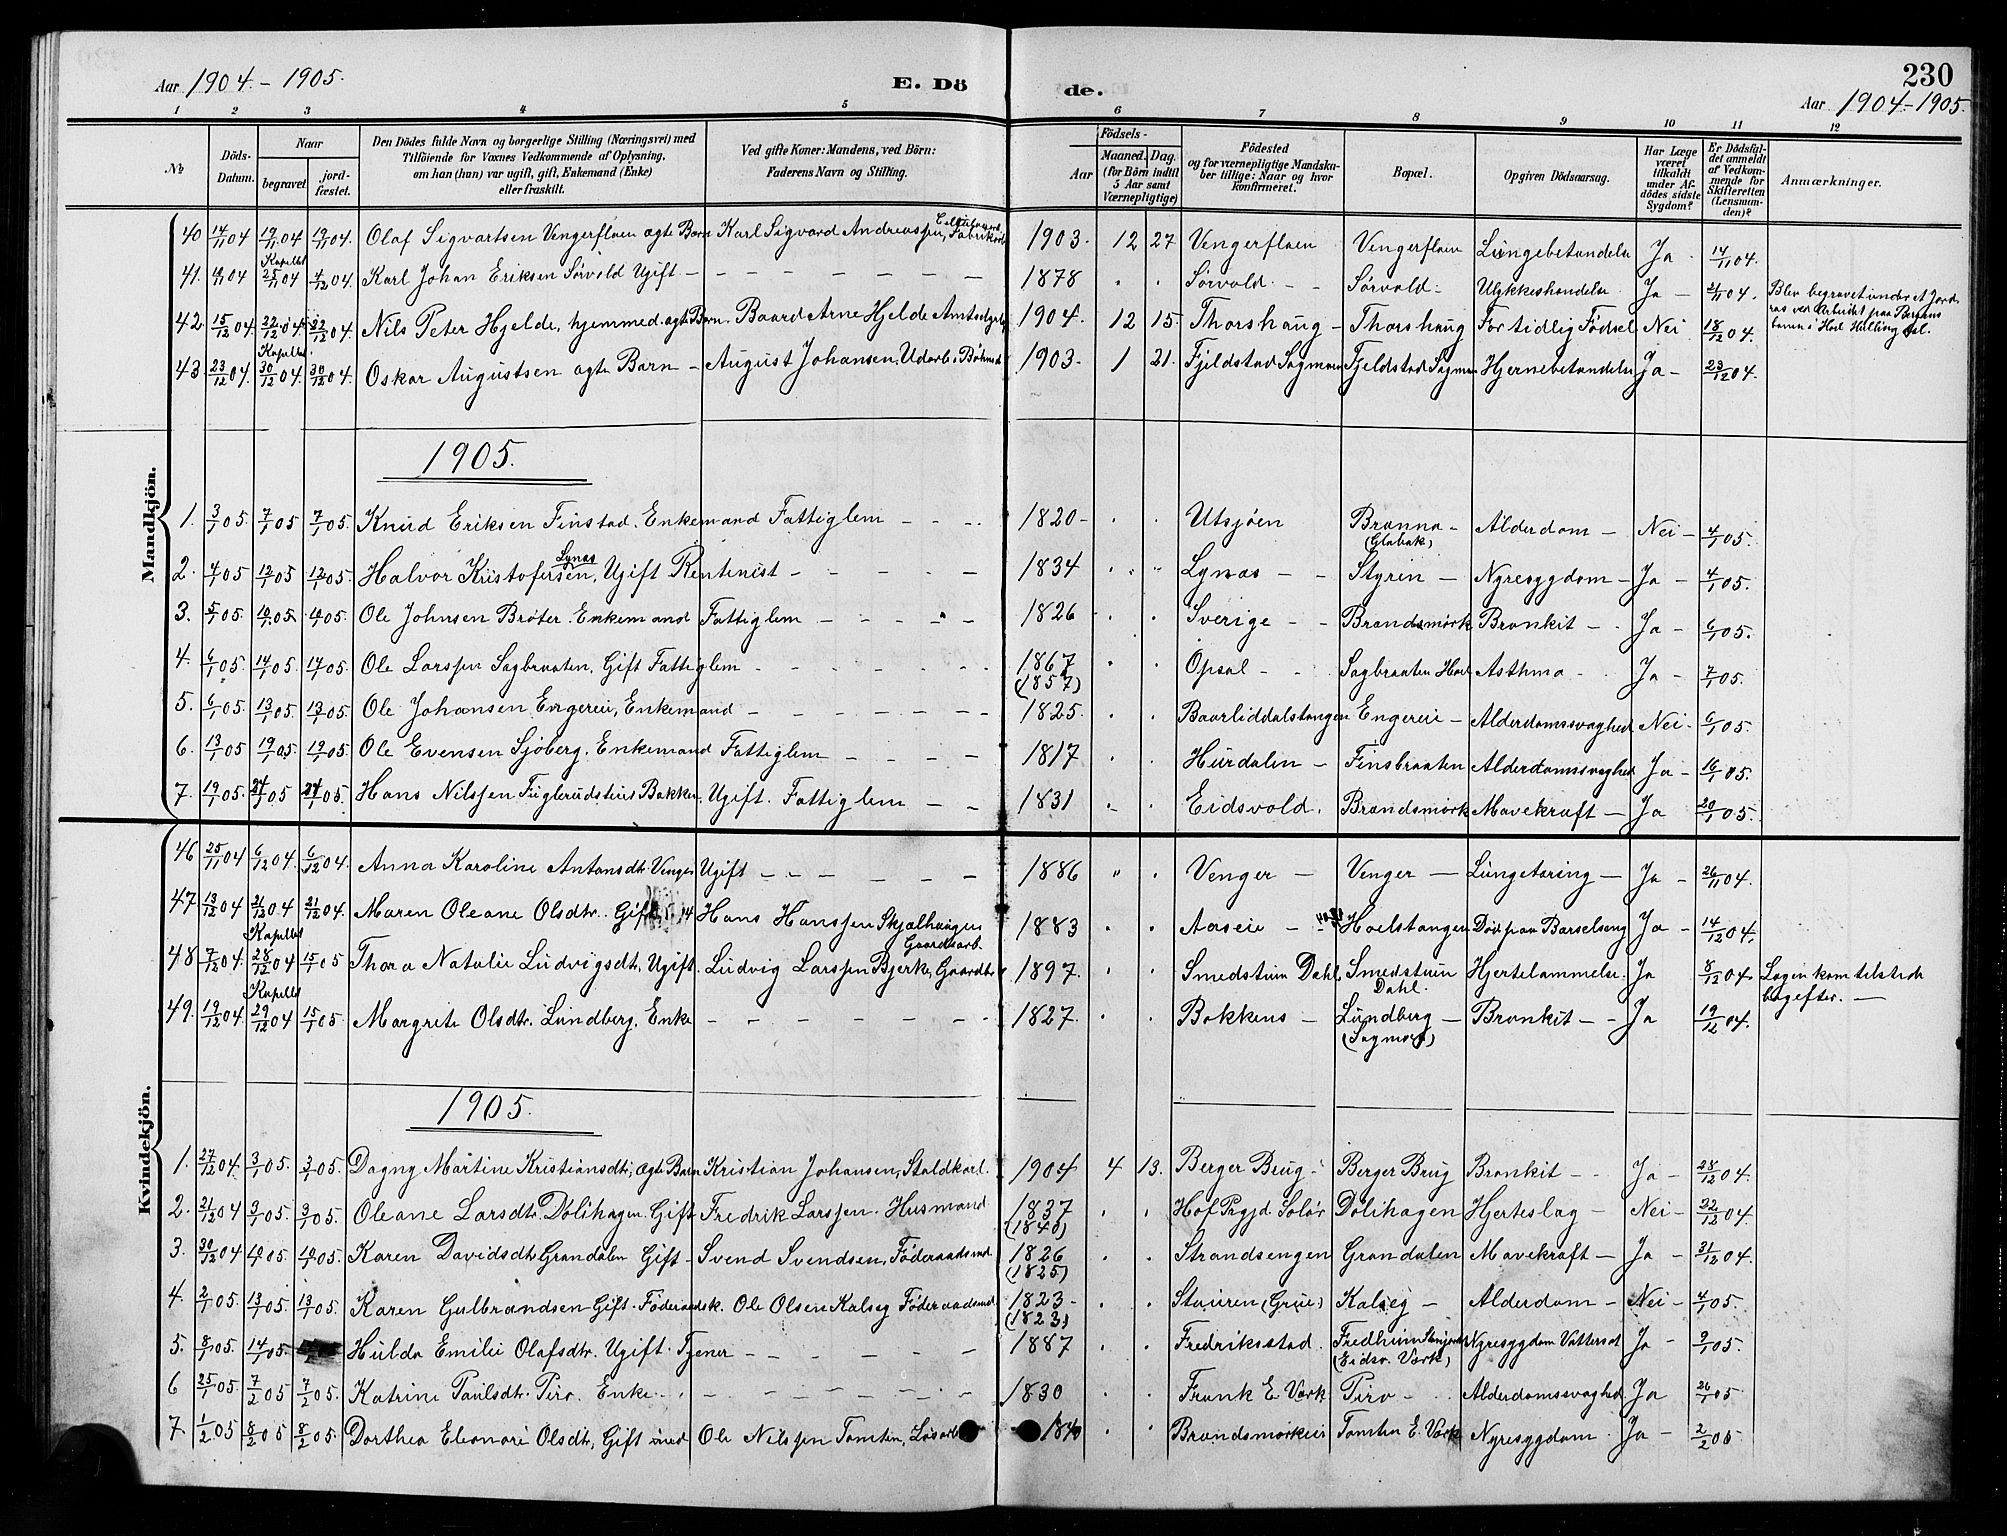 230
Aar 1904 - 1905.
E. Dö de.
Aar 1904-1905.
1 2 3 4 5 6 7 8 9 10 11 12
No
Döds-Datum.
Naar
begravet
jord-fæstet.
Den Dödes fulde Navn og borgerlige Stilling (Næringsvei) med
Tilföiende for Voxnes Vedkommende af Oplysning,
om han (hun) var ugift, gift, Enkemand (Enke)
eller fraskilt.
Ved gifte Koner: Mandens, ved Börn:
Faderens Navn og Stilling.
Födsels-
Aar
Maaned. Dag.
(for Börn indtil
5 Aar samt
Værnepligtige)
Födested
og for værnepligtige Mandska-
ber tillige: Naar og hvor
konfirmeret.
Bopæl.
Opgiven Dödsaarsag.
Har Læge
været
tilkaldt
under Af-
dödes sidste
Sygdom?
Er Dödsfal-
det anmeldt
af Vedkom-
mende for
Skifteretten
(Lensman-
den)?
Anmærkninger.
Mandkjön.
40 14/11 04 19/11 04 19/11 04. Olaf Sigvartsen Vengerfloen ægte Barn Karl Sigvard Andreassen, 1903. 12 27 Vengerfloen Vengerfloen Lungebetændelse Ja 14/11 04.
Kapellet
41. 04 25/11 04 4/12 04. Karl Johan Eriksen Sørvold Ugift - 1878 Sørvold - Sørvold - Ulykkeshændelse Ja - 21/11 04. Blev begravet under et Jord-
ras ved Arbeidet paa Bergens
banen i Hol Hallingdal.
42 15/12 04 22/12 04 22/12 04. Nils Peter Hjelde, hjemmed. ægte Barn. Baard Arne Hjelde 1904. 12 15. Thorshaug - Thorshaug For tidlig Fødsel Nei 18/12 04.
Kapellet
43 23/12 04. 30/12 04. 30/12 04. Oskar Augustsen ægte Barn - August Johansen, 1903. 1 21. Fjeldstad Sagmoen Fjeldstad Sagmoen Hjernebetændelse Ja - 23/12 04.
1905.
1. 3/1 05. 7/1 05 7/1 05. Knud Eriksen Finstad. Enkemand Fattiglem 1820 - Utsjøen Brænna - Alderdom - Nei - 4/1 05.
(Glabak)
Lynæs
2. 4/1 05 12/1 05 12/1 05. Halvor Kristofersen, Ugift Rentenist 1834 Lynæs - Styrin - Nyresygdom - Ja - 4/1 05.
3. 5/1 05. 10/1 05. 10/1 05. Ole Johnsen Brøter. Enkemand Fattiglem 1826 Sverige - Brandsmork Bronkit - Ja - 6/1 05.
4. 6/1 05. 14/1 05. 14/1 05. Ole Larssen Sagbraaten, Gift Fattiglem 1867 Opsal - Sagbraaten Asthma Ja - 7/1 05.
(1857)
5. 6/1 05. 13/1 05. 13/1 05. Ole Johansen Engereie, Enkemand 1825. Baarliddalstangen Engereie - Alderdomssvaghed Nei - 6/1 05.
6. 13/1 05 19/1 05. 19/1 05. Ole Evensen Sjøberg. Enkemand Fattiglem 1817 Hurdalen - Finsbraaten Alderdomssvaghed Ja - 16/1 05.
7. 19/1 05. 24/1 05 24/1 05. Hans Nilssen Fuglerudstuens Bakken, Ugift. Fattiglem 1831 Eidsvold. Brandsmork Mavekræft - Ja 20/1 05.
Kvindekjön.
46 25/11 04 6/12 04. 6/12 04. Anna Karoline Antonsdtr. Venger Ugift 1886 Venger - Venger - Lungetæring - Ja - 26/11 04.
47 13/12 04 21/12 04 21/12 04. Maren Oleane Olsdtr. Gift Hans Hanssen Skjalhaugen 1883 Aaseie Hoelstangen Død paa Barselseng Ja - 14/12 04.
Kapellet
Gaardsarb.
48 7/12 04. 28/12 04 15/1 05 Thora Natalie Ludvigsdtr, Ugift. Ludvig Larssen Bjerke, 1897. Smedstuen Dahl Smedstuen Dahl. Hjertelammelse. Ja 8/12 04. Lægen kom tilstede
bagefter. -
Kapellet
49. 19/12 04. 29/12 04 15/1 05. Margrete Olsdtr. Lundberg. Enke 1827. Bakkens - Lundberg - Bronkit - Ja 19/12 04.
(Sagmoen)
1905.
1. 27/12 04. 3/1 05. 3/1 05. Dagny Martine Kristiansdtr, ægte Barn Kristian Johansen, Staldkarl. 1904 4 13. Berger Brug - Berger Brug Bronkit - Ja - 28/12 04.
2. 21/12 04 3/1 05. 3/1 05. Oleane Larsdtr. Dølihagen. Gift Fredrik Larssen. Husmand 1837 Hof Prgjd. Solør Dølihagen Hjerteslag - Nei - 22/12 04.
(1840)
3. 30/12 04 10/1 05. 10/1 05. Karen Davidsdtr Grandalen Gift - Svend Svendsen, Føderaadsmd. 1826 Strandsengen Grandalen Mavekræft - Ja - 31/12 04.
(1825)
4. 2/1 05. 13/1 05. 13/1 05. Karen Gulbrandsen Gift. Føderaadsk. Ole Olsen Kalseg Føderaadsmd. 1823 - Stauren (Grue) Kalseg - Alderdom - Nei - 4/1 05.
(1823)
5. 8/1 05. 14/1 05. Hulda Emilie Olafsdtr. Ugift. Tjener 1887 Fredriksstad. Fredheim Nyresygdom Vattersot Ja - 9/1 05.
(Eidsv. Værk)
6 25/1 05. 7/2 05 7/2 05. Katrine Paulsdtr. Piro. Enke. 1830 Frank E. Værk Piro - Alderdomssvaghed. Ja 26/1 05
7. 1/2 05 8/2 05 8/2 05. Dorthea Eleonore Olsdtr, Gift med Ole Nilssen Tomten, Løsarb. 1840 Brandsmorkeie Tomten E. Værk Nyresygdom. Ja - 2/2 05